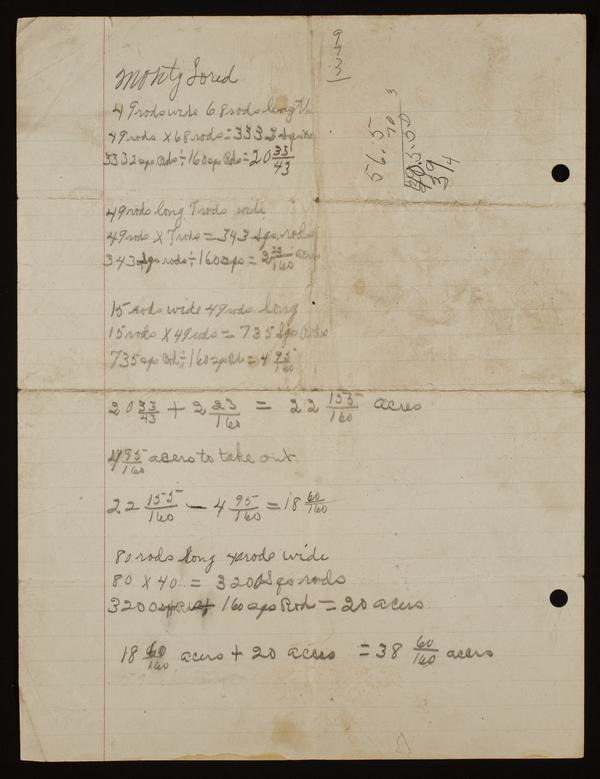 Monty Lored
49 rods wide 68 rods length
49 rods X 68 rods = 3332 Sqs rds
3332 sqs Rds ÷ 160 sqs Rds = 20 33/43
49 rods long 7 rods wide
49 rods X 7 rods = 343 Sqs. rods
343 Sqs rods ÷ 160 sqs = 2 23/160 acres
15 rods wide 49 rods long
15 rods X 49 rods = 735 Sqs Rods
735 sqs Rds ÷ 160 sqs Rds = 4 95/160
20 33/43 + 2 23/160 = 22 155/160 acres
4 95/160 acers to take out
22 155/160 - 4 95/160 = 18 60/160
80 rods long 40 rods wide
80 X 40 = 3200 Sqs rods
3200 160 sqs Rods = 20 acers
18 60/160 acers + 20 acers = 38 60/160 acers
973
56.5
70
39
314